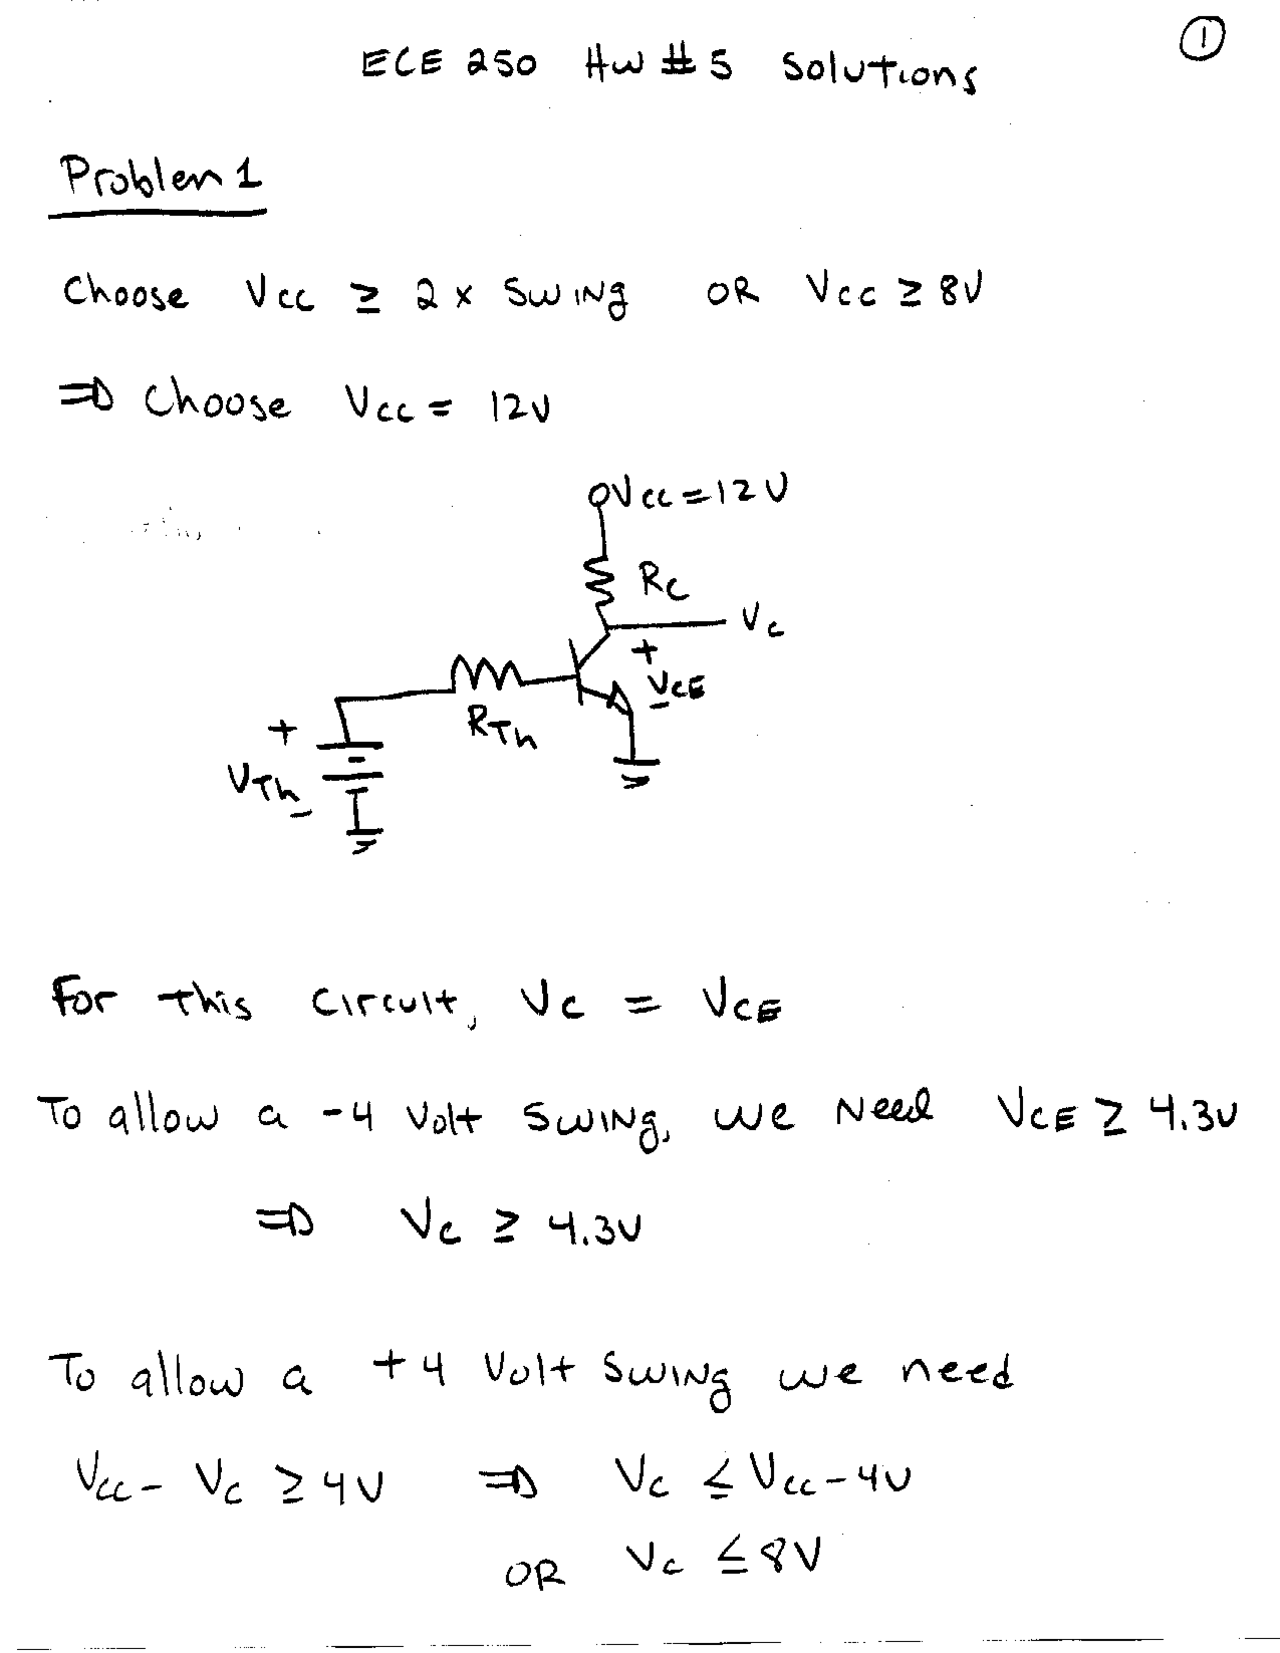 1
ECE 250 HW # 5 Solutions
Problem 1
Choose Vcc ≥ 2 x Swing OR Vcc ≥ 8V
⇒ Choose Vcc = 12V
Vcc = 12V
Rc
Vc
+
VCE
-
RTh
+
VTh
-
For this circuit, Vc = VCE
To allow a -4 Volt Swing, we Need VCE ≥ 4.3V
⇒ Vc ≥ 4.3V
To allow a +4 Volt Swing we need
Vcc - Vc ≥ 4V ⇒ Vc ≤ Vcc - 4V
OR Vc ≤ 8V